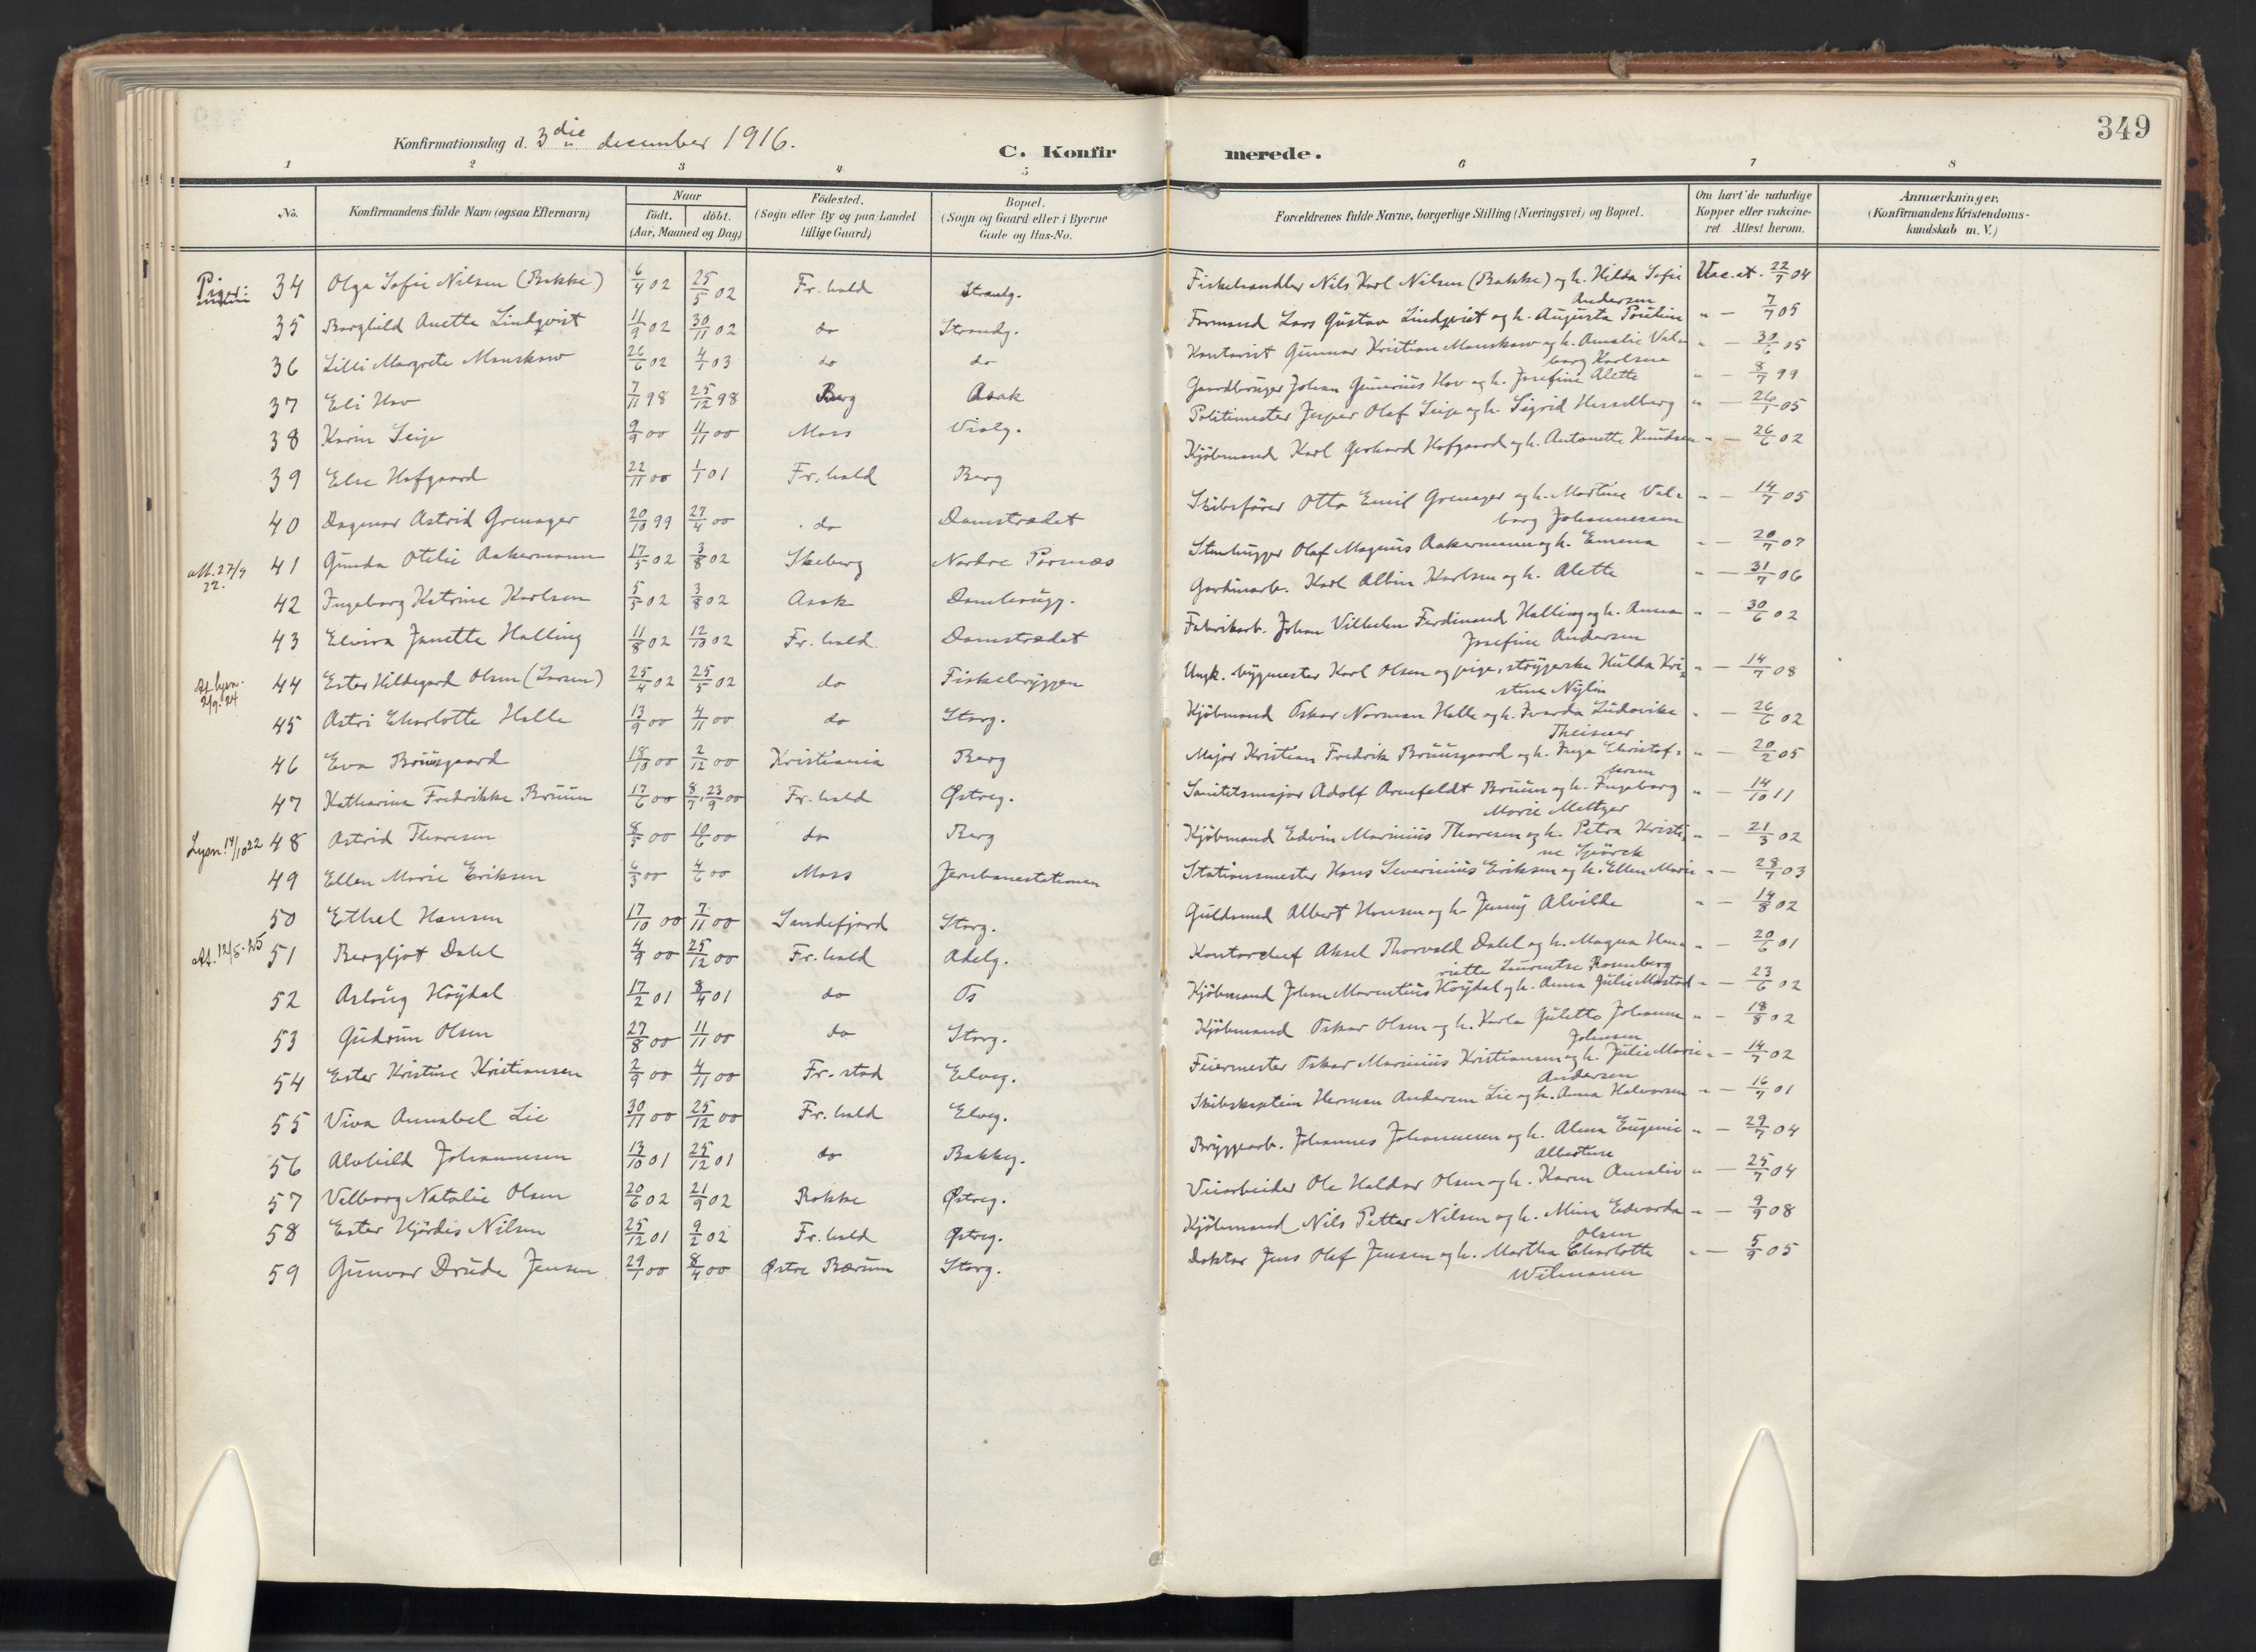 349
Konfirmationsdag d. 3die december 1916.
C. Konfirmerede.
1 2 3 4 5 6 7 8
No. Konfirmandens fulde Navn (ogsaa Efternavn) Naar født. døbt. (Aar, Maaned og Dag) Fødested. (Sogn eller By og paa Landet tillige Gaard) Bopæl. (Sogn og Gaard eller i Byerne Gade og Hus-No. Forældrenes fulde Navne, borgerlige Stilling (Næringsvei) og Bopæl. Om havt de naturlige Kopper eller vakcineret. Attest herom. Anmærkninger. (Konfirmandens Kristendomskundskab m. V.)
Piger: 34 Olga Sofie Nilsen (Bakke) 6/4 02 25/5 02 Fr.hald Strandg. Fiskehandler Nils Karl Nilsen (Bakke) og h. Hilda Sofie Andersen Vac.at. 22/7 04
35 Borghild Anette Lindqvist 11/9 02 30/11 02 do Strandg. Formand Lars Gustav Lindqvist og h. Augusta Pouline " — 7/7 05
36 Lilli Margrete Manskow 26/6 02 4/1 03 do do Kontorist Gunnar Kristian Manskow og h. Amalie Valborg Karlsen " — 30/6 05
37 Eli Hov 7/11 98 25/12 98 Berg Asak Gaardbruger Johan Gunerius Hov og h. Josefine Alette " — 8/7 99
38 Karin Seip 9/9 00 11/11 00 Moss Violg. Politimester Jesper Olaf Seip og h. Sigrid Hesselberg " — 26/1 05
39 Else Hofgaard 22/11 00 1/1 01 Fr.hald Berg Kjøbmand Karl Gerhard Hofgaard og h. Antonette Knudsen " — 26/6 02
40 Dagmar Astrid Grenager 20/10 99 27/4 00 do Damstrædet Skibsfører Otto Emil Grenager og h. Martine Valborg Johannessen " — 14/7 05
att. 27/9 22. 41 Gunda Otilie Aakermann 17/5 02 3/8 02 Skeberg Nordre Pornæs Stenhugger Olaf Magnus Aakermann og h. Emma " — 20/7 07
42 Ingeborg Katrine Karlsen 5/5 02 3/8 02 Asak Damhaugg. Gardinarb. Karl Albin Karlsen og h. Alette " — 31/7 06
43 Elvira Janette Halling 11/8 02 12/10 02 Fr.hald Damstrædet Fabrikarb. Johan Vilhelm Ferdinand Halling og h. Anna Josefine Andersen " — 30/6 02
At. lysn. 2/9.24 44 Ester Hildegard Olsen (Larsen) 25/4 02 25/5 02 do Fiskebryggen Ungk. bygmester Karl Olsen og pige, strygerske Hulda Kristine Nylin " — 14/7 08
45 Astri Charlotte Helle 13/9 00 4/11 00 do Storg. Kjøbmand Oskar Norman Helle og h. Ivarda Ludovike Theisner " — 26/6 02
46 Eva Bruusgaard 18/10 00 2/12 00 Kristiania Berg Major Kristian Fredrik Bruusgaard og h. Inga Christophersen " — 20/2 05
47 Katharina Fredrikke Bruun 17/6 00 8/7, 23/9 00 Fr.hald Østreg. Sanitetsmajor Adolf Arnfeldt Bruun og h. Ingeborg Marie Meltzer " — 14/10 11
Lysn. 14/10 22 48 Astrid Thoresen 8/5 00 10/6 00 do Berg Kjøbmand Edvin Marinius Thoresen og h. Petra Kristine Spörck " — 21/3 02
49 Ellen Marie Eriksen 4/3 00 4/6 00 Moss Jernbanestationen Stationsmester Hans Severinius Eriksen og h. Ellen Marie " — 28/7 03
50 Ethel Hansen 17/10 00 7/11 00 Sandefjord Storg. Guldsmed Albert Hansen og h. Jenny Alvilde " — 14/8 02
At. 12/5.25 51 Bergljot Dahl 4/9 00 25/12 00 Fr.hald Adelg. Kontorchef Aksel Thorvald Dahl og h. Magna Henriette Laurentse Rosenberg " — 20/6 01
52 Aslaug Høydal 17/2 01 8/4 01 do Os Kjøbmand Johan Marentius Høydal og h. Anna Julie Mostad " — 23/6 02
53 Gudrun Olsen 27/8 00 11/11 00 do Storg. Kjøbmand Oskar Olsen og h. Karla Juletta Johanne Johnsen " — 18/8 02
54 Ester Kristine Kristiansen 2/9 00 4/11 00 Fr.stad Elveg. Feiermester Oskar Marinius Kristiansen og h. Julie Marie Andersen " — 14/7 02
55 Viva Annabel Lie 30/11 00 25/12 00 Fr.hald Elveg. Skibskaptein Herman Andersen Lie og h. Anna Halvorsen " — 16/7 01
56 Alvhild Johannesen 13/10 01 25/12 01 do Bakkeg. Bryggearb. Johannes Johannesen og h. Alma Eugenie Albertine " — 29/7 04
57 Valborg Natalie Olsen 20/6 02 21/9 02 Rokke Østreg. Veiarbeider Ole Haldor Olsen og h. Karen Amalie " — 25/7 04
58 Ester Hjørdis Nilsen 25/12 01 9/2 02 Fr.hald Østreg. Kjøbmand Nils Petter Nilsen og h. Mina Edvarda Olsen " — 9/9 08
59 Gunvor Drude Jensen 29/1 00 8/4 00 Østre Bærum Storg. Doktor Jens Olaf Jensen og h. Martha Charlotte Wilmann " — 5/9 05